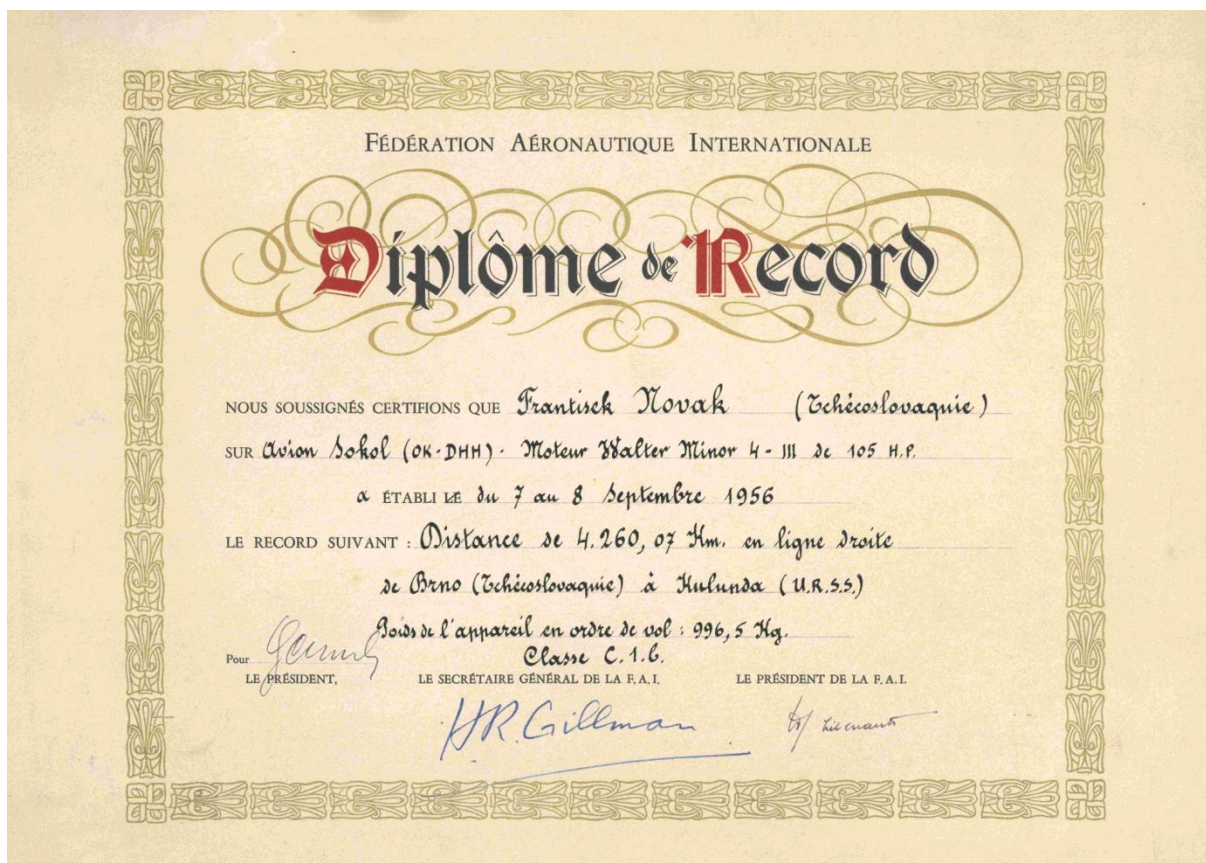 FÉDÉRATION AÉRONAUTIQUE INTERNATIONALE
Diplôme de Record
NOUS SOUSSIGNÉS CERTIFIONS QUE Frantisek Novak (Tchécoslovaquie)
SUR Avion Sokol (OK-DHH). Moteur Walter Minor 4-III de 105 H.P.
a ÉTABLI LE du 7 au 8 Septembre 1956
LE RECORD SUIVANT : Distance de 4.260,07 Km. en ligne droite
de Brno (Tchécoslovaquie) à Kulunda (U.R.S.S.)
Poids de l'appareil en ordre de vol : 996,5 Kg.
Classe C.1.b.
Pour
LE PRÉSIDENT, LE SECRÉTAIRE GÉNÉRAL DE LA F.A.I. LE PRÉSIDENT DE LA F.A.I.
HR. Gillman